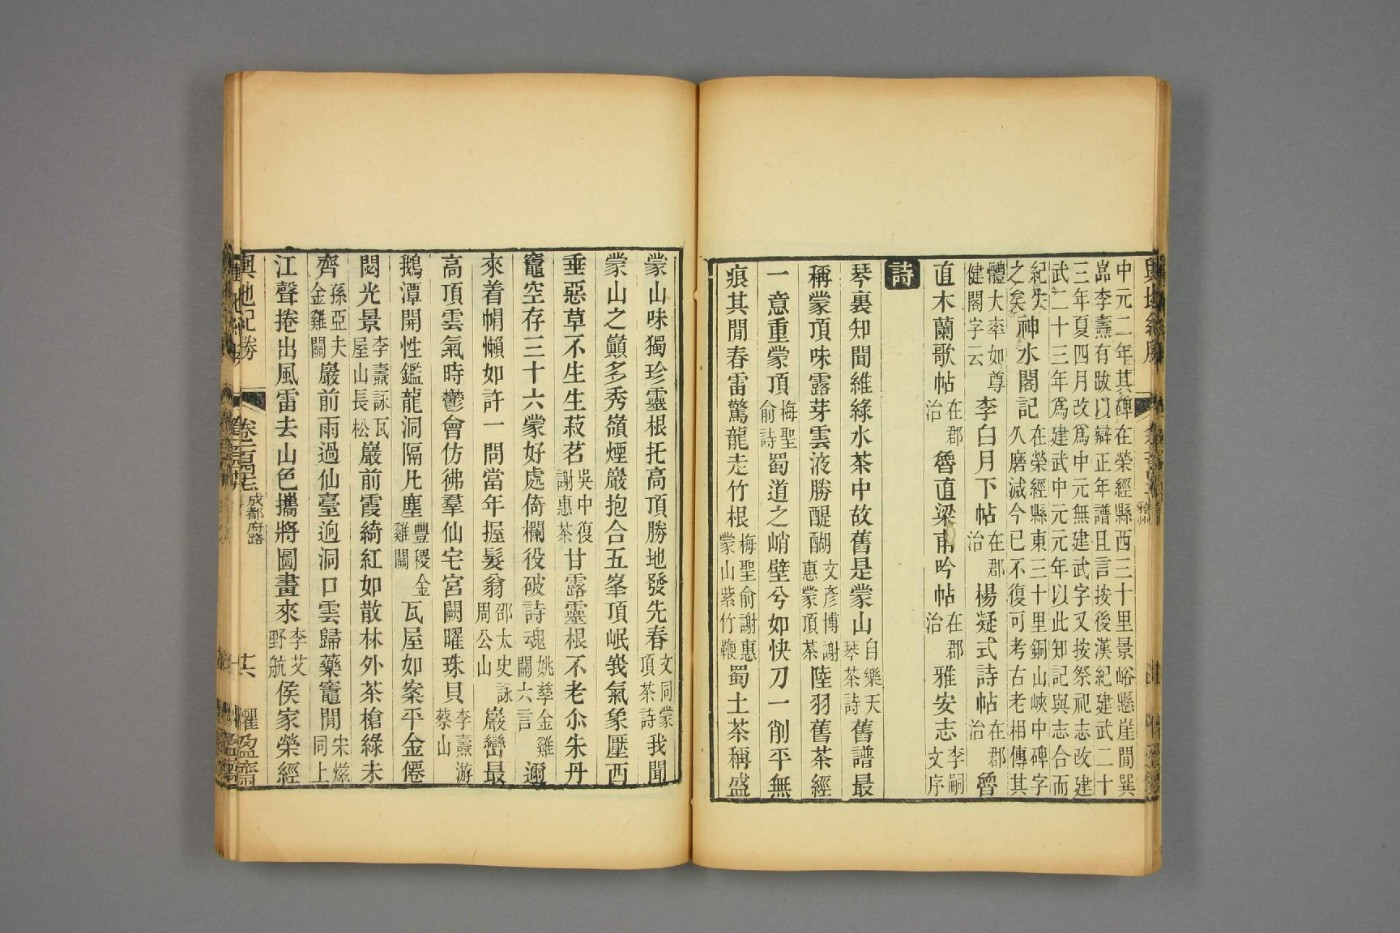 中元二年其碑在榮經縣西三十里景峪懸崖間巽
嵓李燾有跋以辯正年譜且言按後漢紀建武二十
三年夏四月改爲中元無建武字又按祭祀志改建
武二十三年爲建武中元元年以此知記與志合而
紀失
之矣神水閣記在榮經縣東三十里銅山峽中碑字
久磨滅今已不復可考古老相傳其
體大率如尊
健閣字云李白月下帖在郡
治楊疑式詩帖在郡
治魯
直木蘭歌帖在郡
治魯直梁甫吟帖在郡
治雅安志李嗣
文序
詩
琴裏知聞維綠水茶中故舊是蒙山白樂天
琴茶詩舊譜最
稱蒙頂味露芽雲液勝醍醐文彥博謝
惠蒙頂茶陸羽舊茶經
一意重蒙頂梅聖
俞詩蜀道之峭壁兮如快刀一削平無
痕其間春雷驚龍走竹根梅聖俞謝惠
蒙山紫竹鞭蜀土茶稱盛
蒙山味獨珍靈根托高頂勝地發先春文同蒙
頂茶詩我聞
蒙山之巔多秀嶺煙巖抱合五峯頂岷峩氣象壓西
垂惡草不生生菽茗吳中復
謝惠茶甘露靈根不老尒朱丹
竈空存三十六蒙好處倚欄役破詩魂姚孳金雞
關六言邇
來着帽懶如許一問當年握髮翁邵太史詠
周公山巖巒最
高頂雲氣時鬱會仿彿羣仙宅宮闕曜珠貝李燾游
蔡山
鵝潭開性鑑龍洞隔凡塵豐稷金
雞關瓦屋如案平金僊
閟光景李燾詠瓦
屋山長松巖前霞綺紅如散林外茶槍綠未
齊孫亞夫
金雞關巖前雨過仙臺逈洞口雲歸藥竈閒宋㷫
同上
江聲捲出風雷去山色攜將圖畫來李艾
野航侯家榮經
輿地記勝
成都府路
懼盈齋